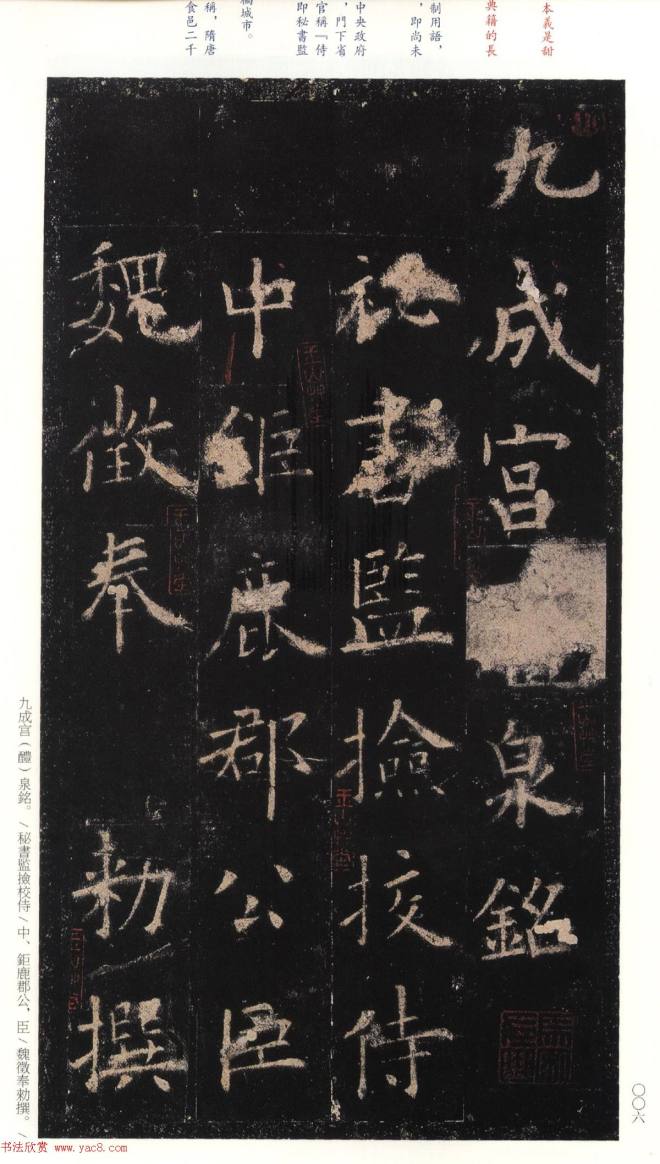 本義是甜
典籍的長
制用語，
，即尚未
中央政府
，門下省
官稱「侍
即秘書監
城市。
稱，隋唐
食邑二千
九成宮泉銘
秘書監撿挍侍
中鉅鹿郡公臣
魏徵奉 勅撰
九成宮（醴）泉銘。/秘書監撿校侍/中、鉅鹿郡公，臣/魏徵奉勅撰。/
〇〇六
书法欣赏 www.yac8.com